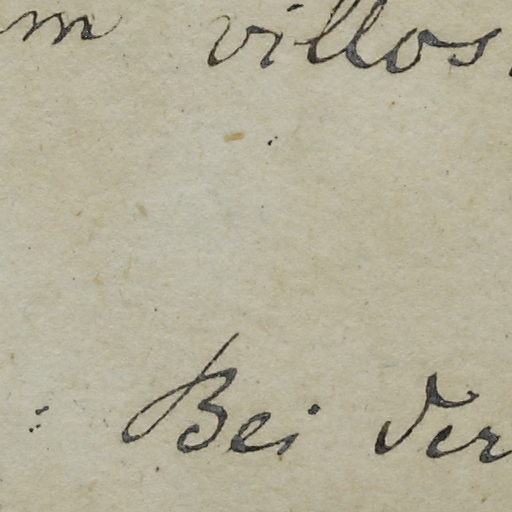 m villos.
: Bei der